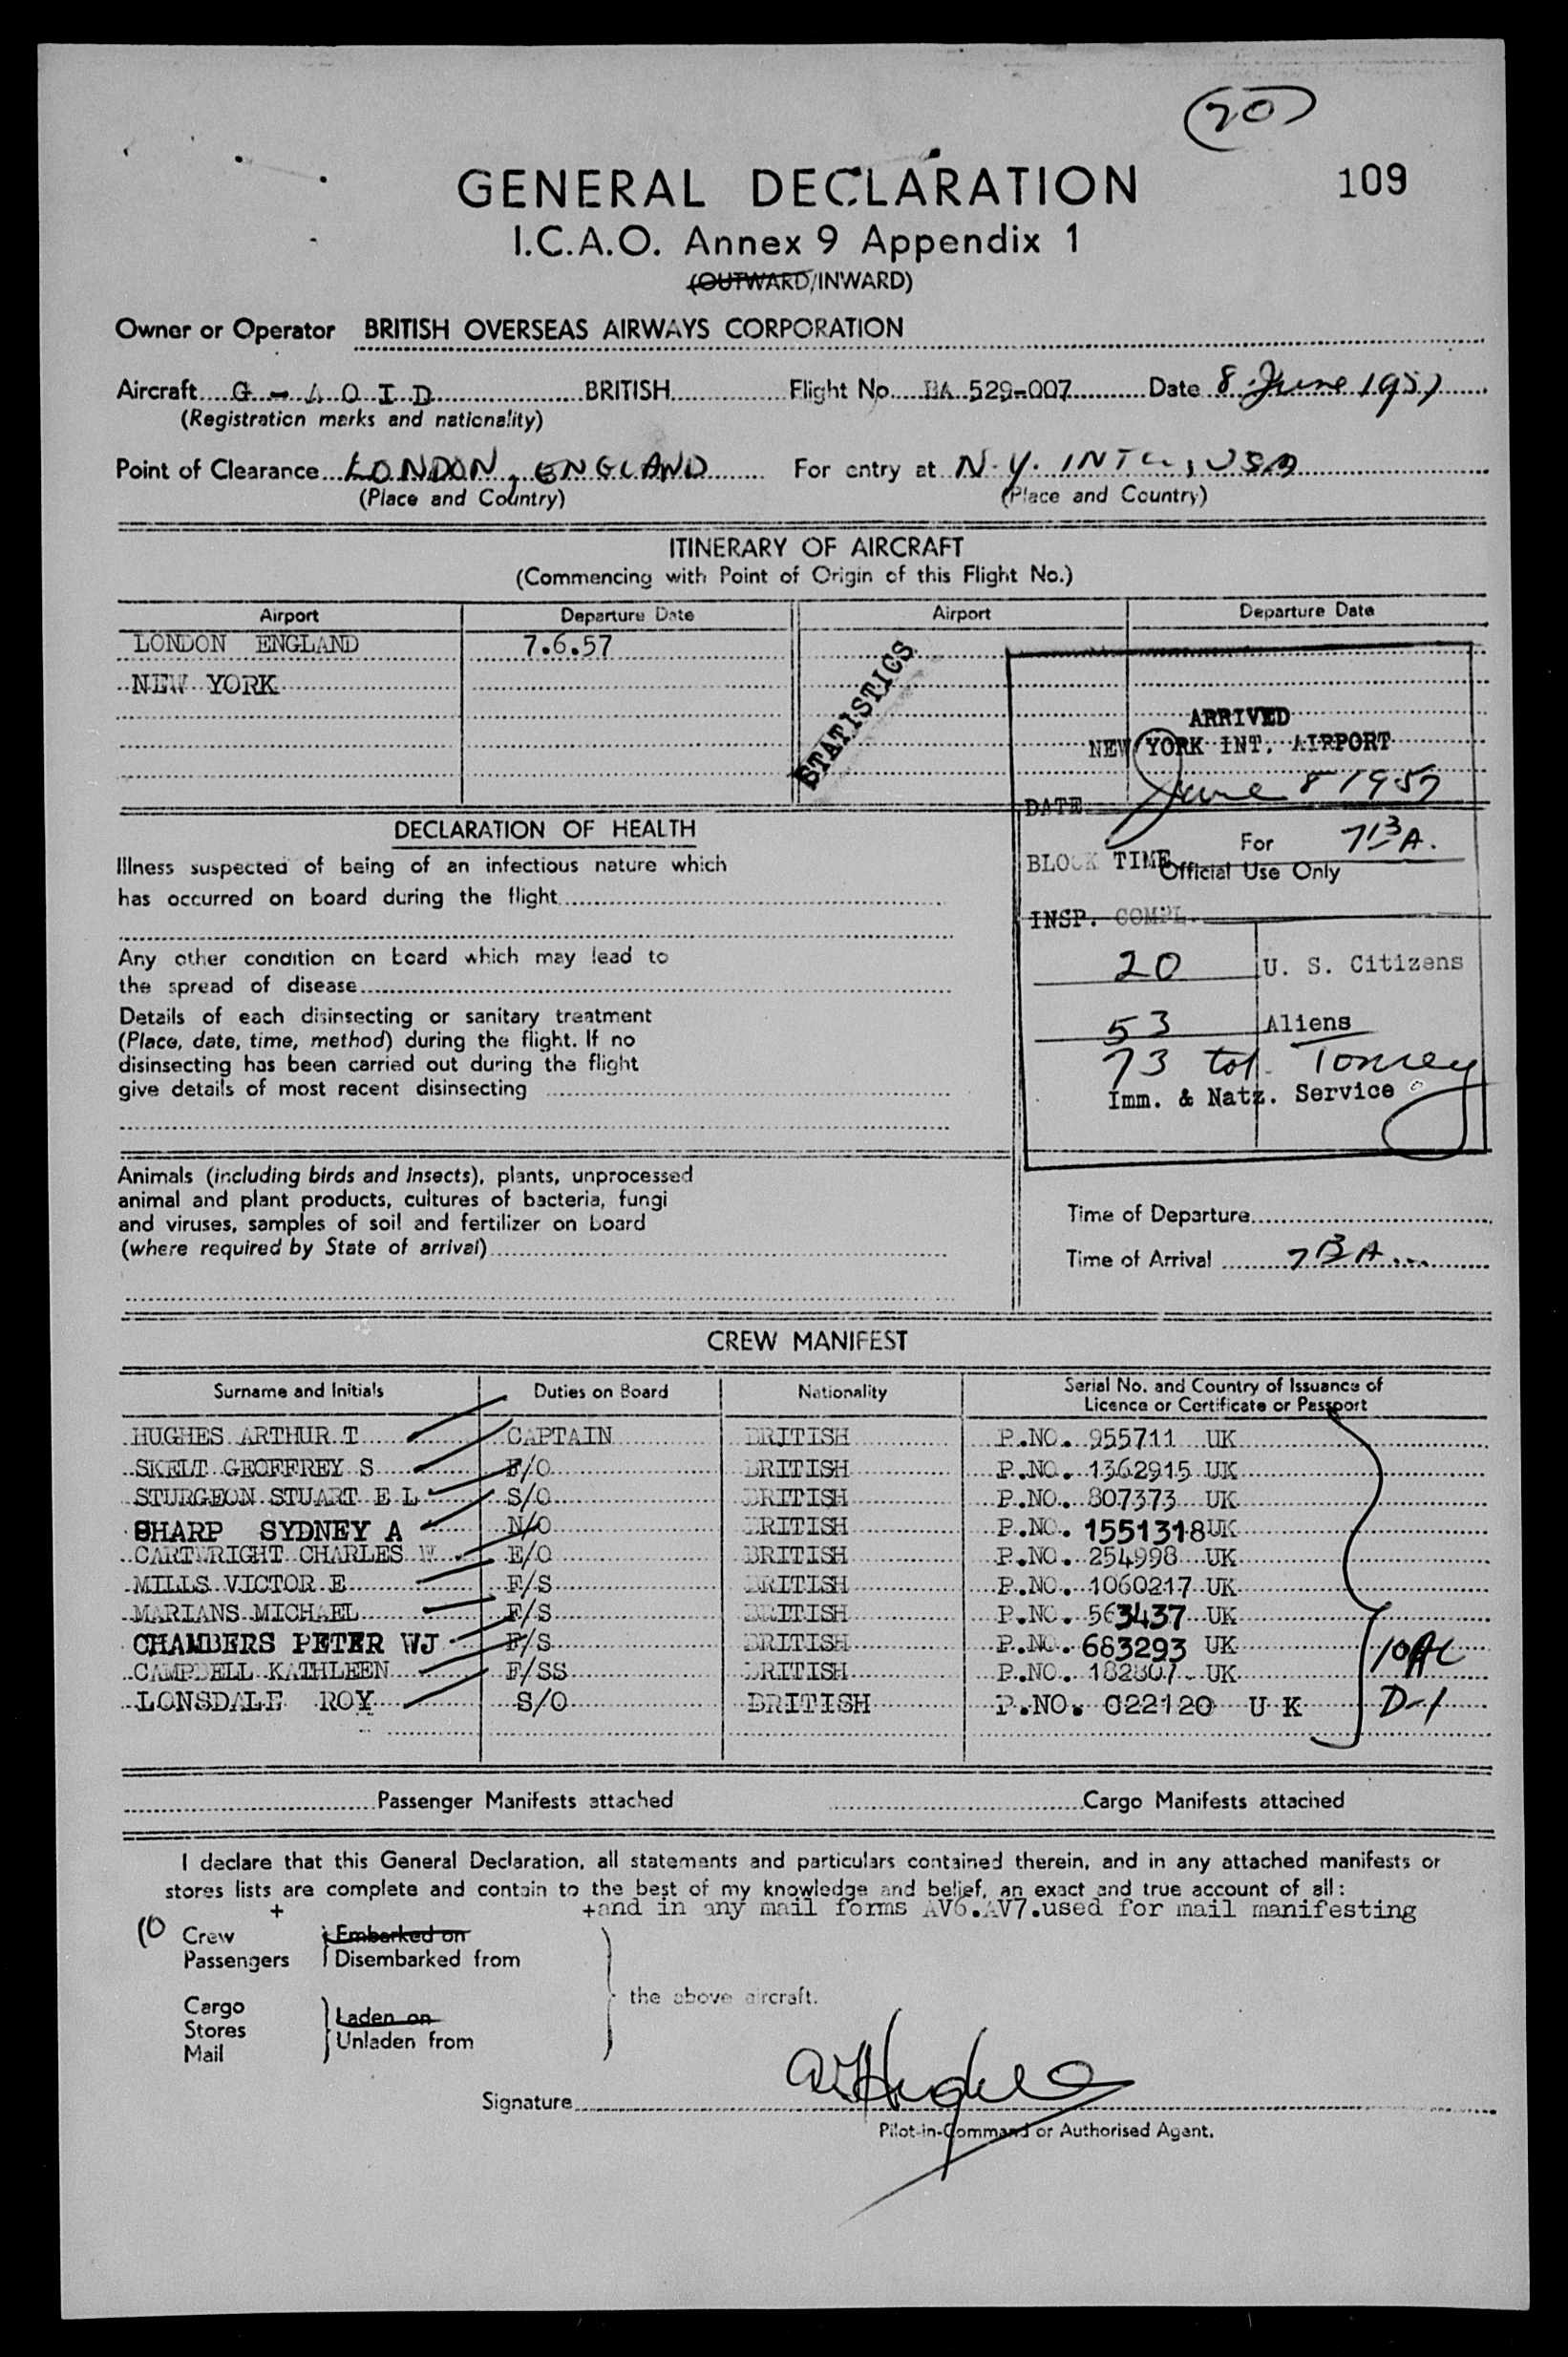 20
GENERAL DECLARATION 109
I.C.A.O. Annex 9 Appendix 1
(OUTWARD/INWARD)
Owner or Operator BRITISH OVERSEAS AIRWAYS CORPORATION
Aircraft G - A O I D BRITISH Flight No. BA 529-007 Date 8 June 1957
(Registration marks and nationality)
Point of Clearance LONDON, ENGLAND For entry at N.Y. INTL, USA
(Place and Country) (Place and Country)
ITINERARY OF AIRCRAFT
(Commencing with Point of Origin of this Flight No.)
Airport Departure Date Airport Departure Date
LONDON ENGLAND 7.6.57
NEW YORK
STATISTICS
ARRIVED
NEW YORK INT. AIRPORT
DATE June 8 1957
DECLARATION OF HEALTH
For
BLOCK TIME 713A.
Official Use Only
Illness suspected of being of an infectious nature which
has occurred on board during the flight
INSP. COMPL.
Any other condition on board which may lead to
the spread of disease
20 U. S. Citizens
Details of each disinsecting or sanitary treatment
(Place, date, time, method) during the flight. If no
disinsecting has been carried out during the flight
give details of most recent disinsecting
53 Aliens
73 tot.
Imm. & Natz. Service
Animals (including birds and insects), plants, unprocessed
animal and plant products, cultures of bacteria, fungi
and viruses, samples of soil and fertilizer on board
(where required by State of arrival)
Time of Departure
Time of Arrival 713A
CREW MANIFEST
Surname and Initials Duties on Board Nationality Serial No. and Country of Issuance of
Licence or Certificate or Passport
HUGHES ARTHUR T CAPTAIN BRITISH P.NO. 955711 UK
SKELT GEOFFREY S F/O BRITISH P.NO. 1362915 UK
STURGEON STUART E L S/O BRITISH P.NO. 807373 UK
SHARP SYDNEY A N/O BRITISH P.NO. 1551318 UK
CARTWRIGHT CHARLES W E/O BRITISH P.NO. 254998 UK
MILLS VICTOR E F/S BRITISH P.NO. 1060217 UK
MARIANS MICHAEL F/S BRITISH P.NO. 563437 UK
CHAMBERS PETER WJ F/S BRITISH P.NO. 683293 UK
CAMPBELL KATHLEEN F/SS BRITISH P.NO. 182807 UK
LONSDALE ROY S/O BRITISH P.NO. 022120 U K
D-1
Passenger Manifests attached Cargo Manifests attached
I declare that this General Declaration, all statements and particulars contained therein, and in any attached manifests or
stores lists are complete and contain to the best of my knowledge and belief, an exact and true account of all:
+ +and in any mail forms AV6.AV7.used for mail manifesting
10 Crew Embarked on
Passengers Disembarked from
the above aircraft.
Cargo
Stores Laden on
Mail Unladen from
Signature ATHughes
Pilot-in-Command or Authorised Agent.